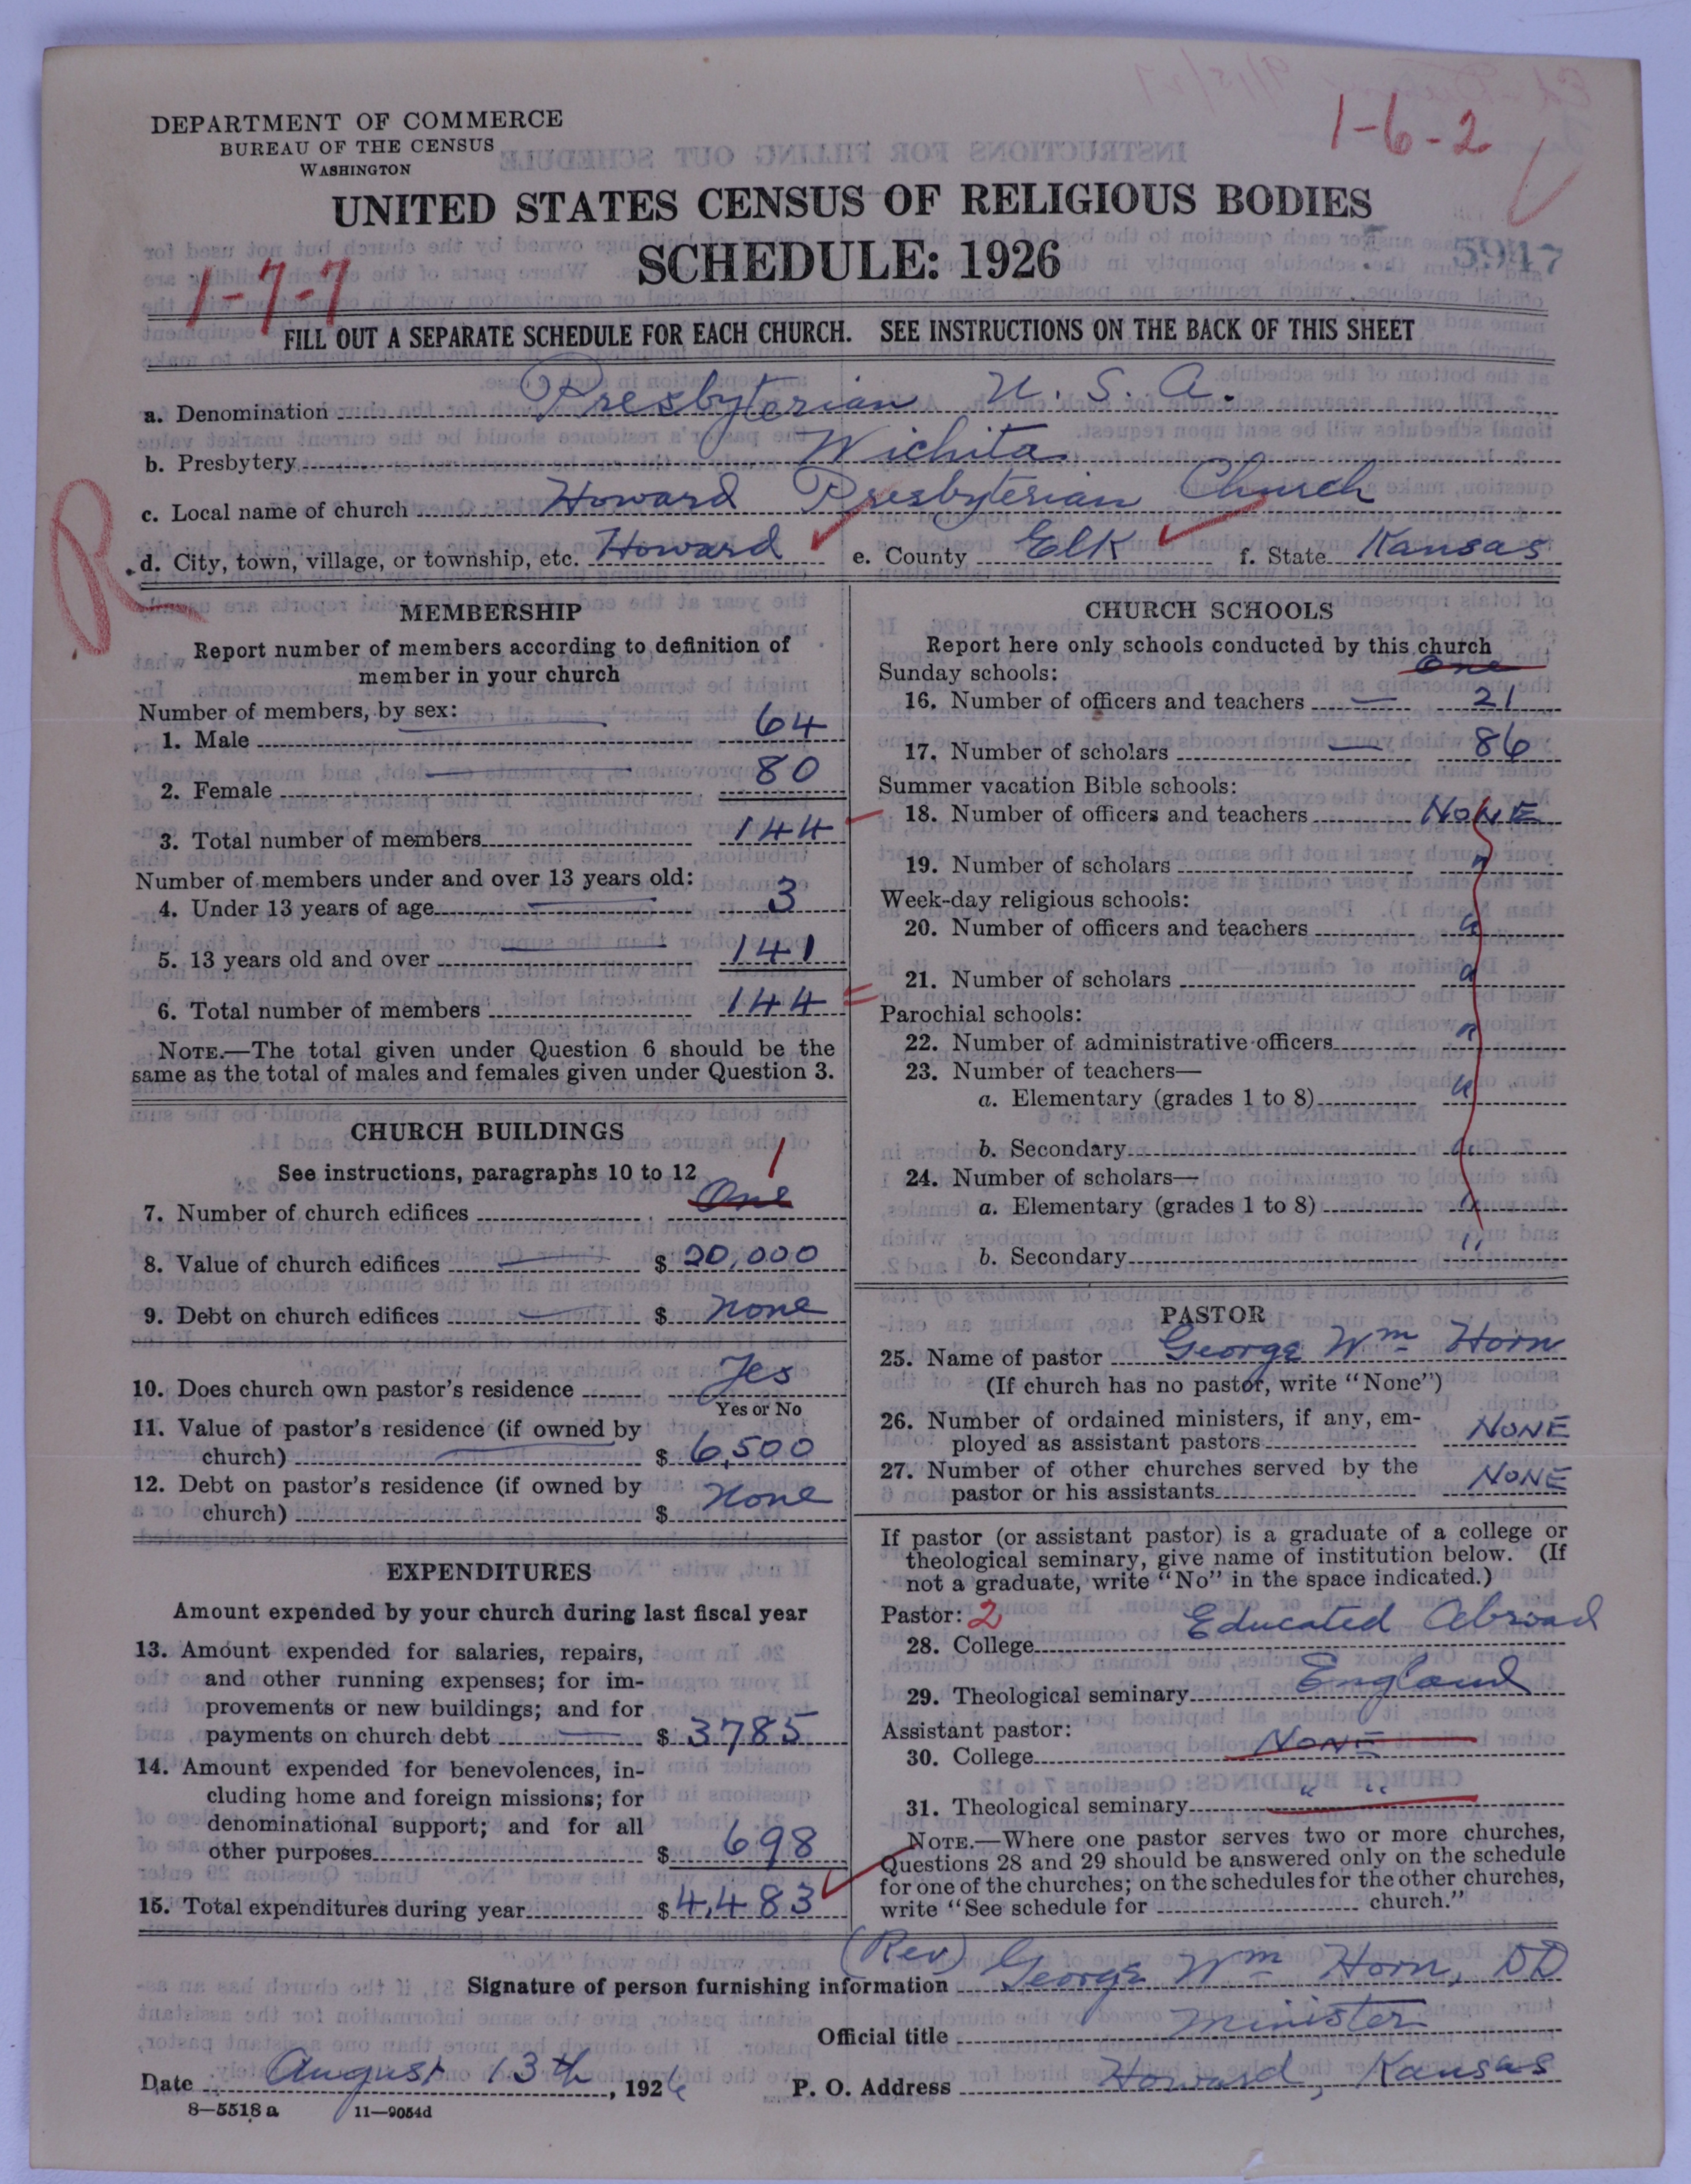 1-6-2
DEPARTMENT OF COMMERCE
BUREAU OF THE CENSUS
WASHINGTON
UNITED STATES CENSUS OF RELIGIOUS BODIES
SCHEDULE: 1926
5947
1-7-7
FILL OUT A SEPARATE SCHEDULE FOR EACH CHURCH. SEE INSTRUCTIONS ON THE BACK OF THIS SHEET
a. Denomination Presbyterian U. S. A.
b. Presbytery Wichita
c. Local name of church Howard Presbyterian Church
R
d. City, town, village, or township, etc. Howard e. County Elk f. State Kansas
MEMBERSHIP
Report number of members according to definition of
member in your church
Number of members, by sex:
1. Male 64
2. Female 80
3. Total number of members 144
Number of members under and over 13 years old:
4. Under 13 years of age 3
5. 13 years old and over 141
6. Total number of members 144
NOTE.—The total given under Question 6 should be the
same as the total of males and females given under Question 3.
CHURCH BUILDINGS
See instructions, paragraphs 10 to 12
1
7. Number of church edifices One
8. Value of church edifices $ 20,000
9. Debt on church edifices $ none
10. Does church own pastor's residence Yes
Yes or No
11. Value of pastor's residence (if owned by
church) $ 6,500
12. Debt on pastor's residence (if owned by
church) $ none
EXPENDITURES
Amount expended by your church during last fiscal year
13. Amount expended for salaries, repairs,
and other running expenses; for im-
provements or new buildings; and for
payments on church debt $ 3785
14. Amount expended for benevolences, in-
cluding home and foreign missions; for
denominational support; and for all
other purposes $ 698
15. Total expenditures during year $ 4,483
CHURCH SCHOOLS
Report here only schools conducted by this church
Sunday schools: one
16. Number of officers and teachers 21
17. Number of scholars 86
Summer vacation Bible schools:
18. Number of officers and teachers NONE
19. Number of scholars "
Week-day religious schools:
20. Number of officers and teachers "
21. Number of scholars "
Parochial schools:
22. Number of administrative officers "
23. Number of teachers—
a. Elementary (grades 1 to 8) "
b. Secondary "
24. Number of scholars—
a. Elementary (grades 1 to 8) "
b. Secondary "
PASTOR
25. Name of pastor George Wm Horn
(If church has no pastor, write "None")
26. Number of ordained ministers, if any, em-
ployed as assistant pastors NONE
27. Number of other churches served by the
pastor or his assistants NONE
If pastor (or assistant pastor) is a graduate of a college or
theological seminary, give name of institution below. (If
not a graduate, write "No" in the space indicated.)
Pastor: 2
28. College Educated Abroad
29. Theological seminary England
Assistant pastor:
30. College NONE
31. Theological seminary " "
NOTE.—Where one pastor serves two or more churches,
Questions 28 and 29 should be answered only on the schedule
for one of the churches; on the schedules for the other churches,
write "See schedule for church."
Signature of person furnishing information (Rev) George Wm Horn, DD
Official title Minister
Date August 13th, 1926 P. O. Address Howard, Kansas
8—5518 a 11—9054d